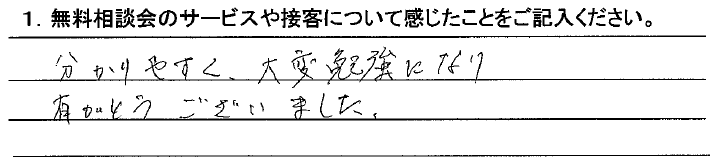 1. 無料相談会のサービスや接客について感じたことをご記入ください。
分かりやすく、大変勉強になり
有がとうございました。